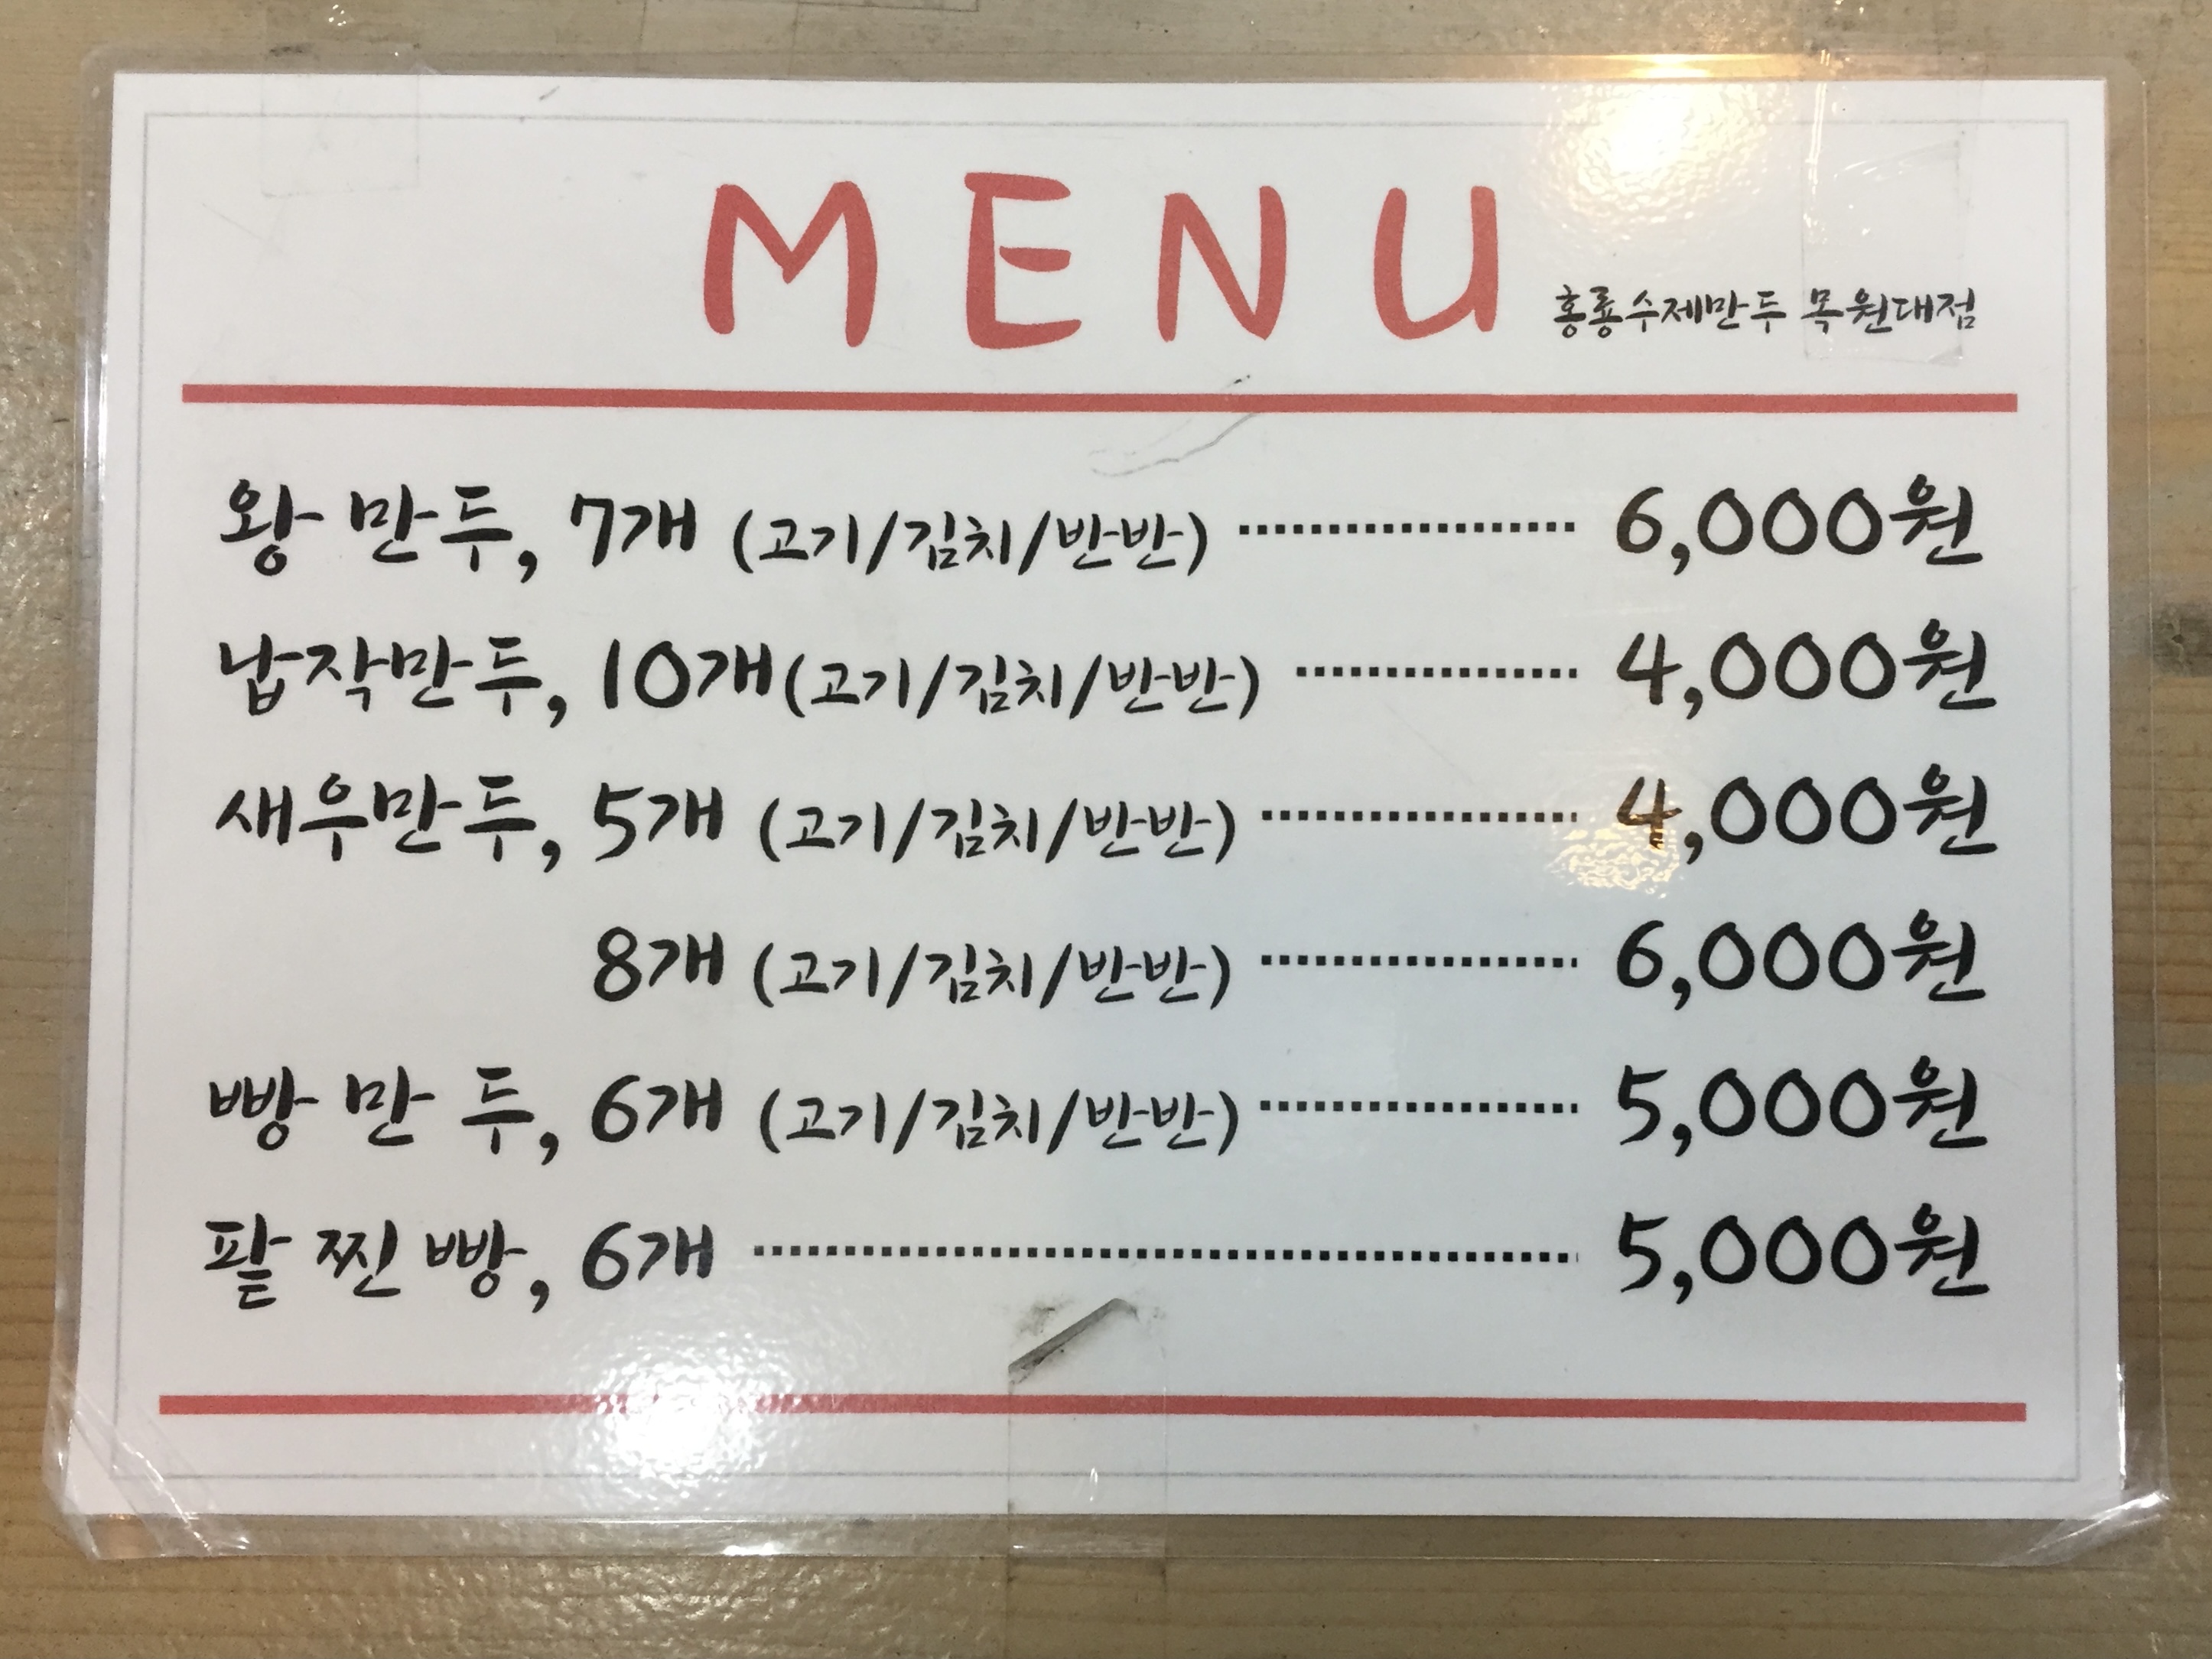 MENU
홍룡수제만두 목원대점
왕만두, 7개 (고기/김치/반반) 6,000원
납작만두, 10개(고기/김치/반반) 4,000원
새우만두, 5개 (고기/김치/반반) 4,000원
8개 (고기/김치/반반) 6,000원
빵만두, 6개 (고기/김치/반반) 5,000원
팥찐빵, 6개 5,000원